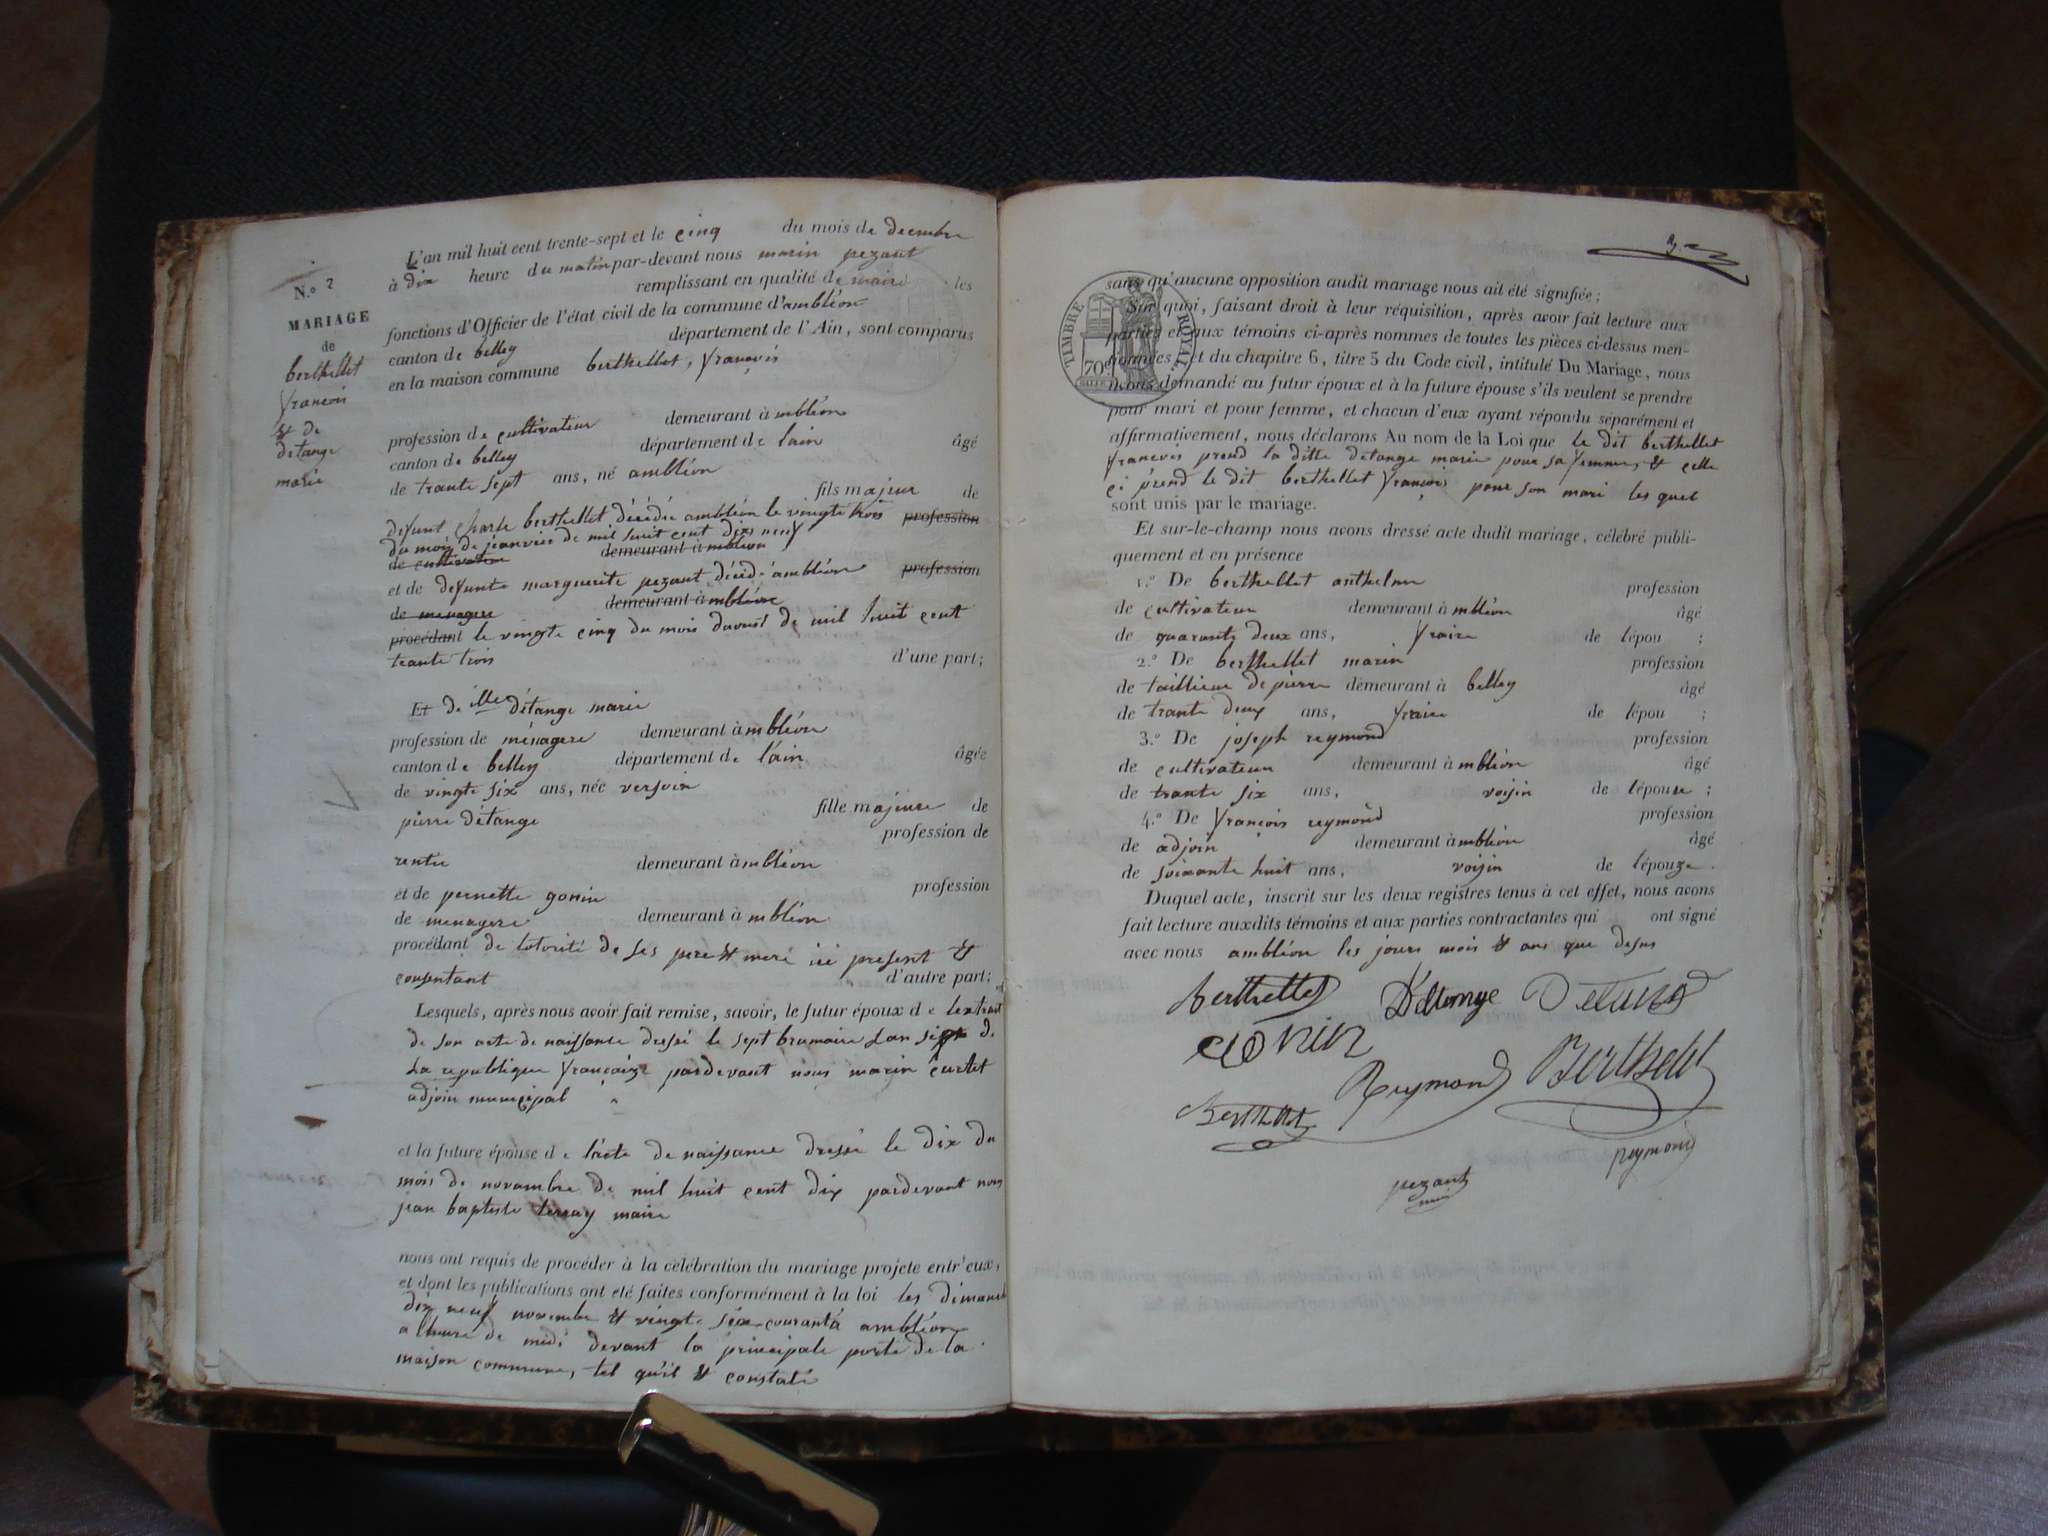 L'an mil huit cent trente-sept et le cinq du mois de decembre
à dix heure du matin par-devant nous marin pezant
remplissant en qualité de maire les
fonctions d'Officier de l'état civil de la commune d'ambléon
canton de belley département de l'Ain, sont comparus
en la maison commune berthellet, françois
N.° 2
MARIAGE
de
berthellet
françois
& de
detange
marie
profession de cultivateur demeurant à mbléon
canton de belley département de lain âgé
de trante sept ans, né ambléon
fils majeur de
defunt charle berthellet décédé ambléon le vingte trois profession
du mois de jeanvier de mil huit cent dix neuf
de cultivateur demeurant à mbléon
et de defunte marguerite pezant décédé ambléon profession
de menagere demeurant à mbléon
procédant le vingte cinq du mois davoust de mil huit cent
trante trois d'une part;
Et de ille détange marie
profession de ménagere demeurant à mbléon
canton de belley département de lain âgée
de vingte six ans, née versoin
fille majeure de
pierre détange profession de
rentie demeurant à mbléon
et de pernette gonin profession
de menagere demeurant à mbléon
procédant de lotorité de ses pere & mere ici present &
consentant d'autre part;
Lesquels, après nous avoir fait remise, savoir, le futur époux de lextrait
de son acte de naissance dressé le sept brumaire lan sept de
la republique françaize pardevant nous marin curtet
adjoin municipal
et la future épouse de lacte de naissance dressé le dix du
mois de novambre de mil huit cent dix pardevant nous
jean baptiste terray maire
nous ont requis de procéder à la célébration du mariage projeté entr'eux,
et dont les publications ont été faites conformément à la loi les dimanche
dix neuf novembre & vingte six courant à ambléon
a lheure de midi devant la principale porte de la
maison commune, tel qu'il & constaté
TIMBRE ROYAL
70c
sans qu'aucune opposition audit mariage nous ait été signifiée;
Sur quoi, faisant droit à leur réquisition, après avoir fait lecture aux
parties et aux témoins ci-après nommés de toutes les pièces ci-dessus men-
tionnées, et du chapitre 6, titre 5 du Code civil, intitulé Du Mariage, nous
avons demandé au futur époux et à la future épouse s'ils veulent se prendre
pour mari et pour femme, et chacun d'eux ayant répondu séparément et
affirmativement, nous déclarons Au nom de la Loi que le dit berthellet
françois prend la ditte detange marie pour sa femme, & celle
ci prend le dit berthellet françois pour son mari les quel
sont unis par le mariage.
Et sur-le-champ nous avons dressé acte dudit mariage, célébré publi-
quement et en présence
1.° De berthellet anthelme profession
de cultivateur demeurant à mbléon âgé
de quarante deux ans, fraire de lépou ;
2.° De berthellet marin profession
de taillieur de pierre demeurant à belley âgé
de trante deux ans, fraire de lépou ;
3.° De joseph reymond profession
de cultivateur demeurant à mbléon âgé
de trante six ans, voisin de lépouse ;
4.° De françois reymond profession
de adjoin demeurant à mbléon âgé
de soixante huit ans, voisin de lépouze .
Duquel acte, inscrit sur les deux registres tenus à cet effet, nous avons
fait lecture auxdits témoins et aux parties contractantes qui ont signé
avec nous ambléon les jours mois & ans que desus
Berthellet Détange Detange
Gonin
Reymond Berthelet
Berthelet
reymond
pezant